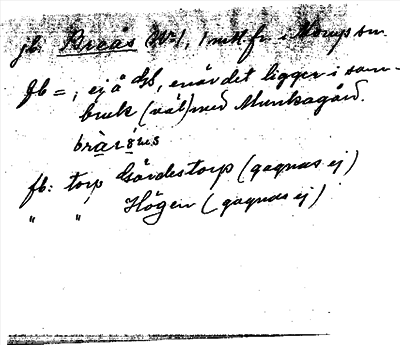 jb. Breås (N:1, 1 mtl. fr. i Morups sn
fb = , ej å GS, enär det ligger i sam-
bruk (väl) med Munkagård.
bràrás
fb: torp Gårdestorp (gagnas ej)
" " Högen (gagnas ej)